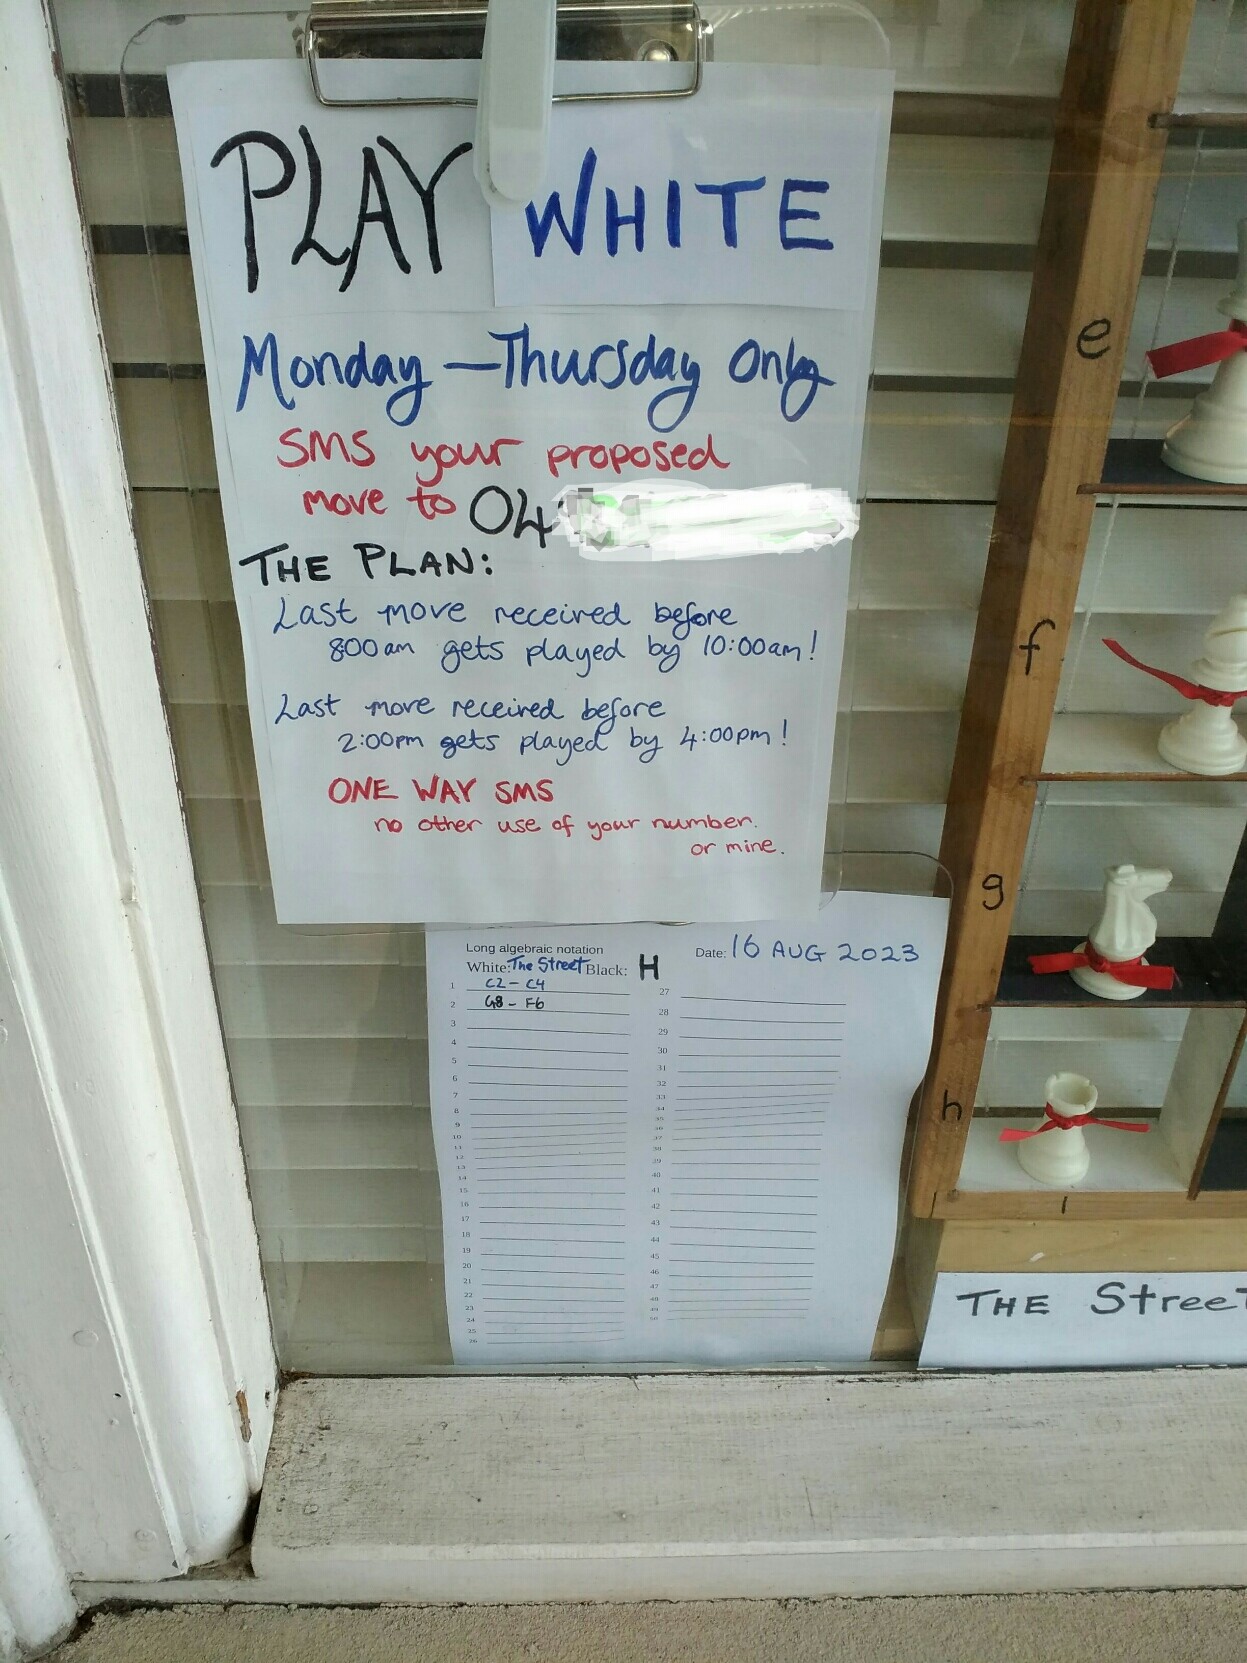 PLAY WHITE
Monday – Thursday Only
SMS your proposed
move to 04
THE PLAN:
Last move received before
800am gets played by 10:00am!
Last move received before
2:00pm gets played by 4:00pm!
ONE WAY SMS
no other use of your number.
or mine.
Long algebraic notation
Date: 16 AUG 2023
White: The Street Black: H
1 C2 - C4
2 G8 - F6
3
4
5
6
7
8
9
10
11
12
13
14
15
16
17
18
19
20
21
22
23
24
25
26
27
28
29
30
31
32
33
34
35
36
37
38
39
40
41
42
43
44
45
46
47
48
49
50
e
f
g
h
1
THE Street